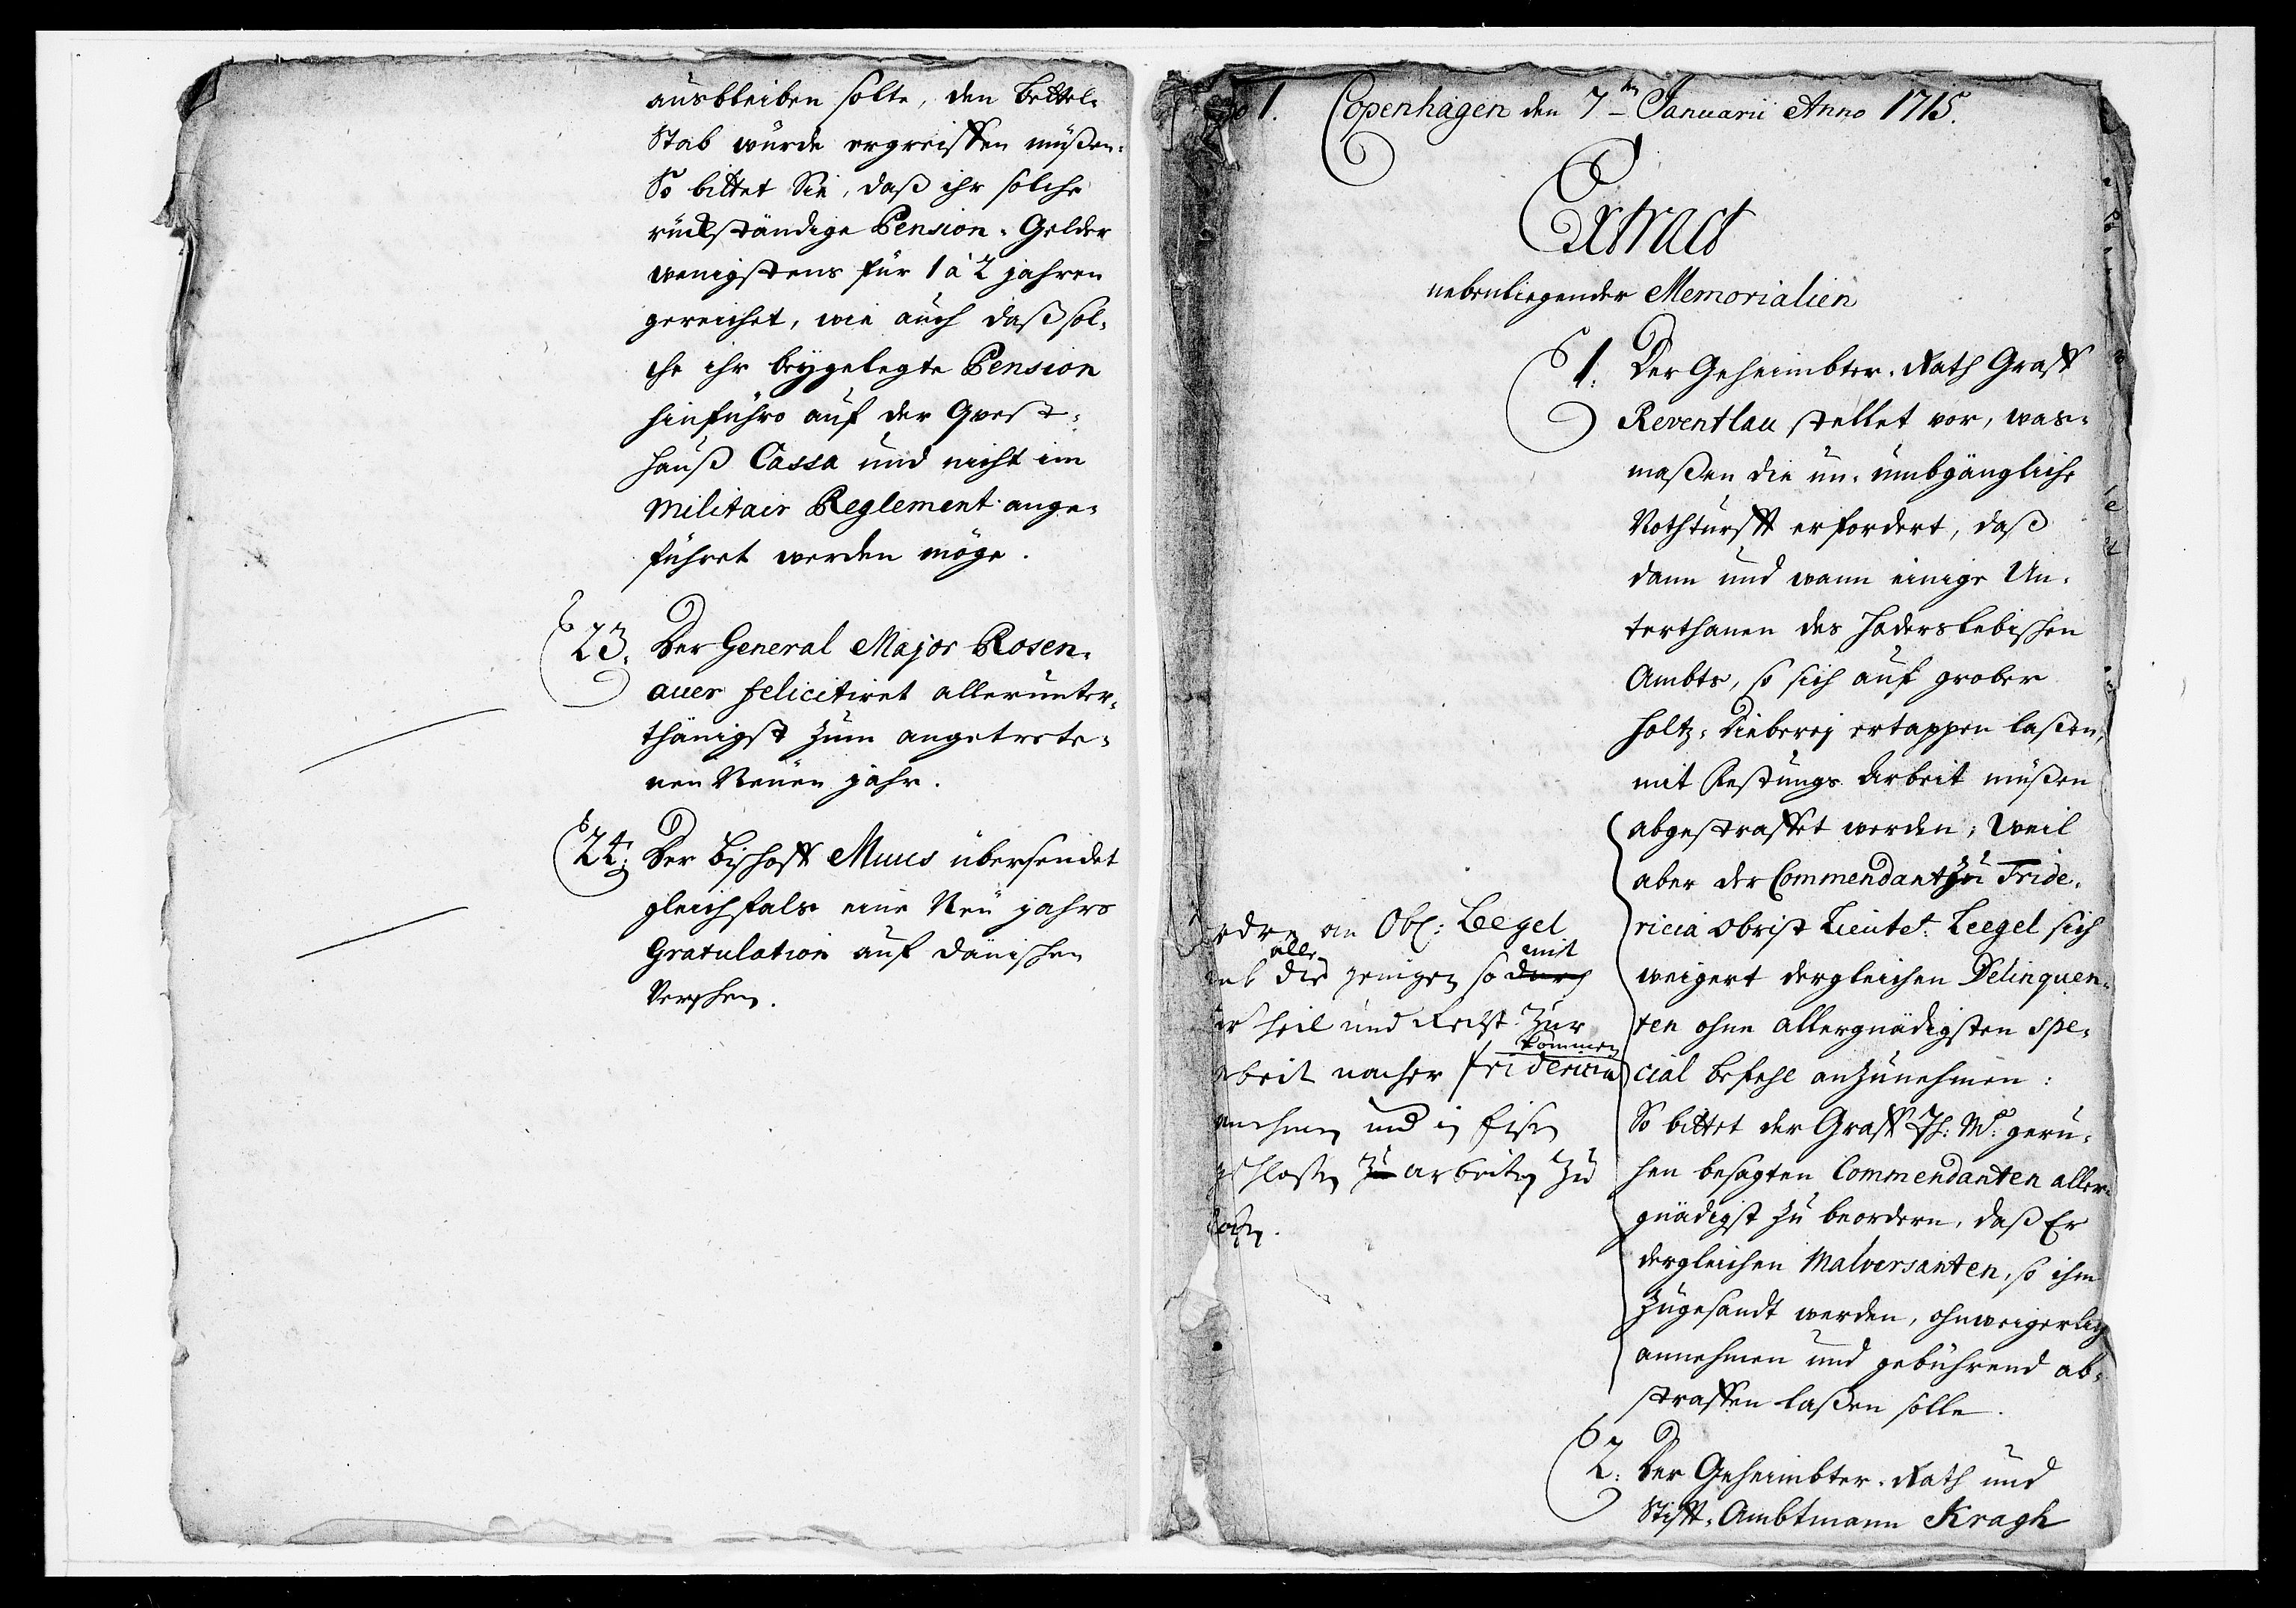 ausbleiben solte, den Bettel-
Stab würde ergreiffen müßen.
So bittet Sie, daß ihr solche
rückständige Pension-Gelder
wenigstens für 1 à 2 jahren
gereichet, wie auch daß sol-
che ihr beygelegte Pension
hinführo auf der Qvest-
hauß Cassa und nicht im
Militair Reglement ange-
führet werden möge.
23. Der General Major Rosen-
auer felicitiret allerunter-
thänigst zum angetrete-
nen Neüen jahr.
24. Der Bischoff Muus übersendet
gleichfals eine Neü jahrs
Gratulation auf dänischen
Verschen.
No 1. Copenhagen den 7ten Januarii Anno 1715.
Extract
nebenliegender Memorialien
1. Der Geheimbter-Rath Graff
Reventlau stellet vor, was-
maßen die un-umbgängliche
Nothturfft erfordert, daß
dann und wann einige Un-
terthanen des Haderslebischen
Ambts, so sich auf grober
Holtz-Dieberej ertappen laßen,
mit Festungs Arbeit müßen
abgestraffet werden; Weil
aber der Commendant zu Fride-
ricia Obrist Lieutet. Leegel sich
weigert dergleichen Delinquen-
ten ohne allergnädigsten spe-
cial befehl anzunehmen:
So bittet der Graff Jh: M: geru-
hen besagten Commendanten aller-
gnädigst zu beordern, daß Er
dergleichen Malversanten, so ihm
zugesandt werden, ohnweigerlich
annehmen und gebührend ab-
straffen laßen solle.
ordre an Obl: Leegel
alle mit
die jenigen so durch
Urtheil und Recht zur
kommen
arbeit nacher Fridericia
an nehmen und in Eisen
geschloßen zu arbeiten zu
laßen.
2. Der Geheimbter-Rath und
Stifft-Ambtmann Kragh